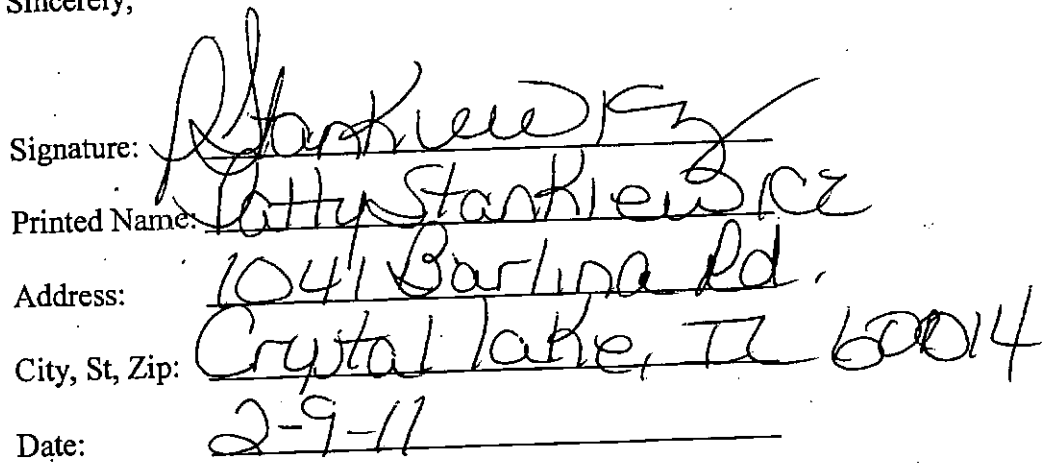 Sincerely,
Signature: PStankiewicz
Printed Name: Patty Stankiewicz
Address: 1041 Barlina Rd.
City, St, Zip: Crystal lake, IL 60014
Date: 2-9-11